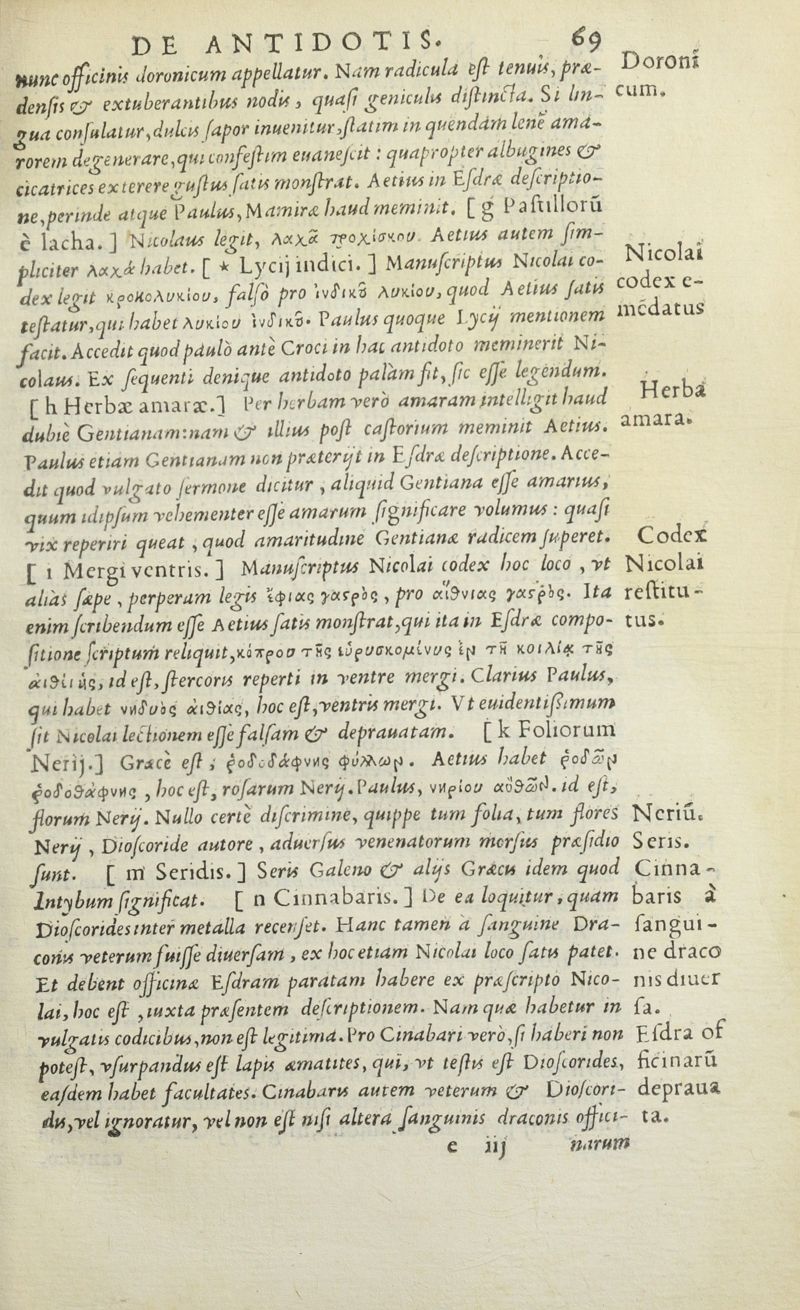 DE ANTIDOTIS. 69
nunc officinis doronicum appellatur. Nam radicula eſt tenuis, præ-
denſis & extuberantibus nodis, quaſi geniculis diſtincta. Si lin-
gua conſulatur, dulcis ſapor inuenitur, ſtatim in quendam lenè ama-
rorem degenerare, qui confeſtim euaneſcit: quapropter albugines &
cicatrices exterere guſtus ſatis monſtrat. Aetius in Eſdræ deſcriptio-
ne, perinde atque Paulus, Mamiræ haud meminit. [ g Paſtillorũ
è lacha. ] Nicolaus legit, λαχᾶ τροχίσκου. Aetius autem ſim-
pliciter λαχᾶ habet. [ * Lycij indici. ] Manuſcriptus Nicolai co-
dex legit κροκολυκίου, falſò pro ἰνδικȣ͂ λυκίου, quod Aetius ſatis
teſtatur, qui habet λυκίου ἰνδικȣ͂. Paulus quoque Lycij mentionem
facit. Accedit quod paulò antè Croci in hac antidoto meminerit Ni-
colaus. Ex ſequenti denique antidoto palàm fit, ſic eſſe legendum.
[ h Herbæ amaræ.] Per herbam verò amaram intelligit haud
dubiè Gentianam: nam & illius poſt caſtorium meminit Aetius.
Paulus etiam Gentianam non præterijt in Eſdræ deſcriptione. Acce-
dit quod vulgato ſermone dicitur, aliquid Gentiana eſſe amarius,
quum idipſum vehementer eſſe amarum ſignificare volumus: quaſi
vix reperiri queat, quod amaritudine Gentianæ radicem ſuperet.
[ i Mergi ventris. ] Manuſcriptus Nicolai codex hoc loco, vt
aliàs ſæpe, perperam legis ἰφιας γαςρὸς, pro αἰθυιας γαςρὸς. Ita
enim ſcribendum eſſe Aetius ſatis monſtrat, qui ita in Eſdræ compo-
ſitione ſcriptum reliquit, κόπρου τῆς εὑρισκομένης ἐν τῆ κοιλίᾳ τῆς
αἰθυίας, id eſt, ſtercoris reperti in ventre mergi. Clarius Paulus,
qui habet νηδύος αἰθίας, hoc eſt, ventris mergi. Vt euidentiſſimum
ſit Nicolai lectionem eſſe falſam & deprauatam. [ k Foliorum
Nerij.] Græcè eſt, ῥοδοδάφνης φύλλων. Aetius habet ῥοδῶν
ῥοδοδάφνης, hoc eſt, roſarum Nerij. Paulus, νηρίου αὐθῶν. id eſt,
florum Nerij. Nullo certè diſcrimine, quippe tum folia, tum flores
Nerij, Dioſcoride autore, aduerſus venenatorum morſus præſidio
ſunt. [ m Seridis. ] Seris Galeno & alijs Græcis idem quod
Intybum ſignificat. [ n Cinnabaris. ] De ea loquitur, quam
Dioſcorides inter metalla recenſet. Hanc tamen à ſanguine Dra-
conis veterum fuiſſe diuerſam, ex hoc etiam Nicolai loco ſatis patet.
Et debent officinæ Eſdram paratam habere ex præſcripto Nico-
lai, hoc eſt, iuxta præſentem deſcriptionem. Nam quæ habetur in
vulgatis codicibus, non eſt legitima. Pro Cinabari verò, ſi haberi non
poteſt, vſurpandus eſt lapis æmatites, qui, vt teſtis eſt Dioſcorides,
eaſdem habet facultates. Cinabaris autem veterum & Dioſcori-
dis, vel ignoratur, vel non eſt niſi altera ſanguinis draconis offici-
e iij narum
Doroni
cum.
Nicolai
codex e-
mēdatus
Herba
amara.
Codex
Nicolai
reſtitu-
tus.
Neriũ.
Seris.
Cinna-
baris à
ſangui-
ne draco
nis diuer
ſa.
Eſdra of
ficinarũ
depraua
ta.